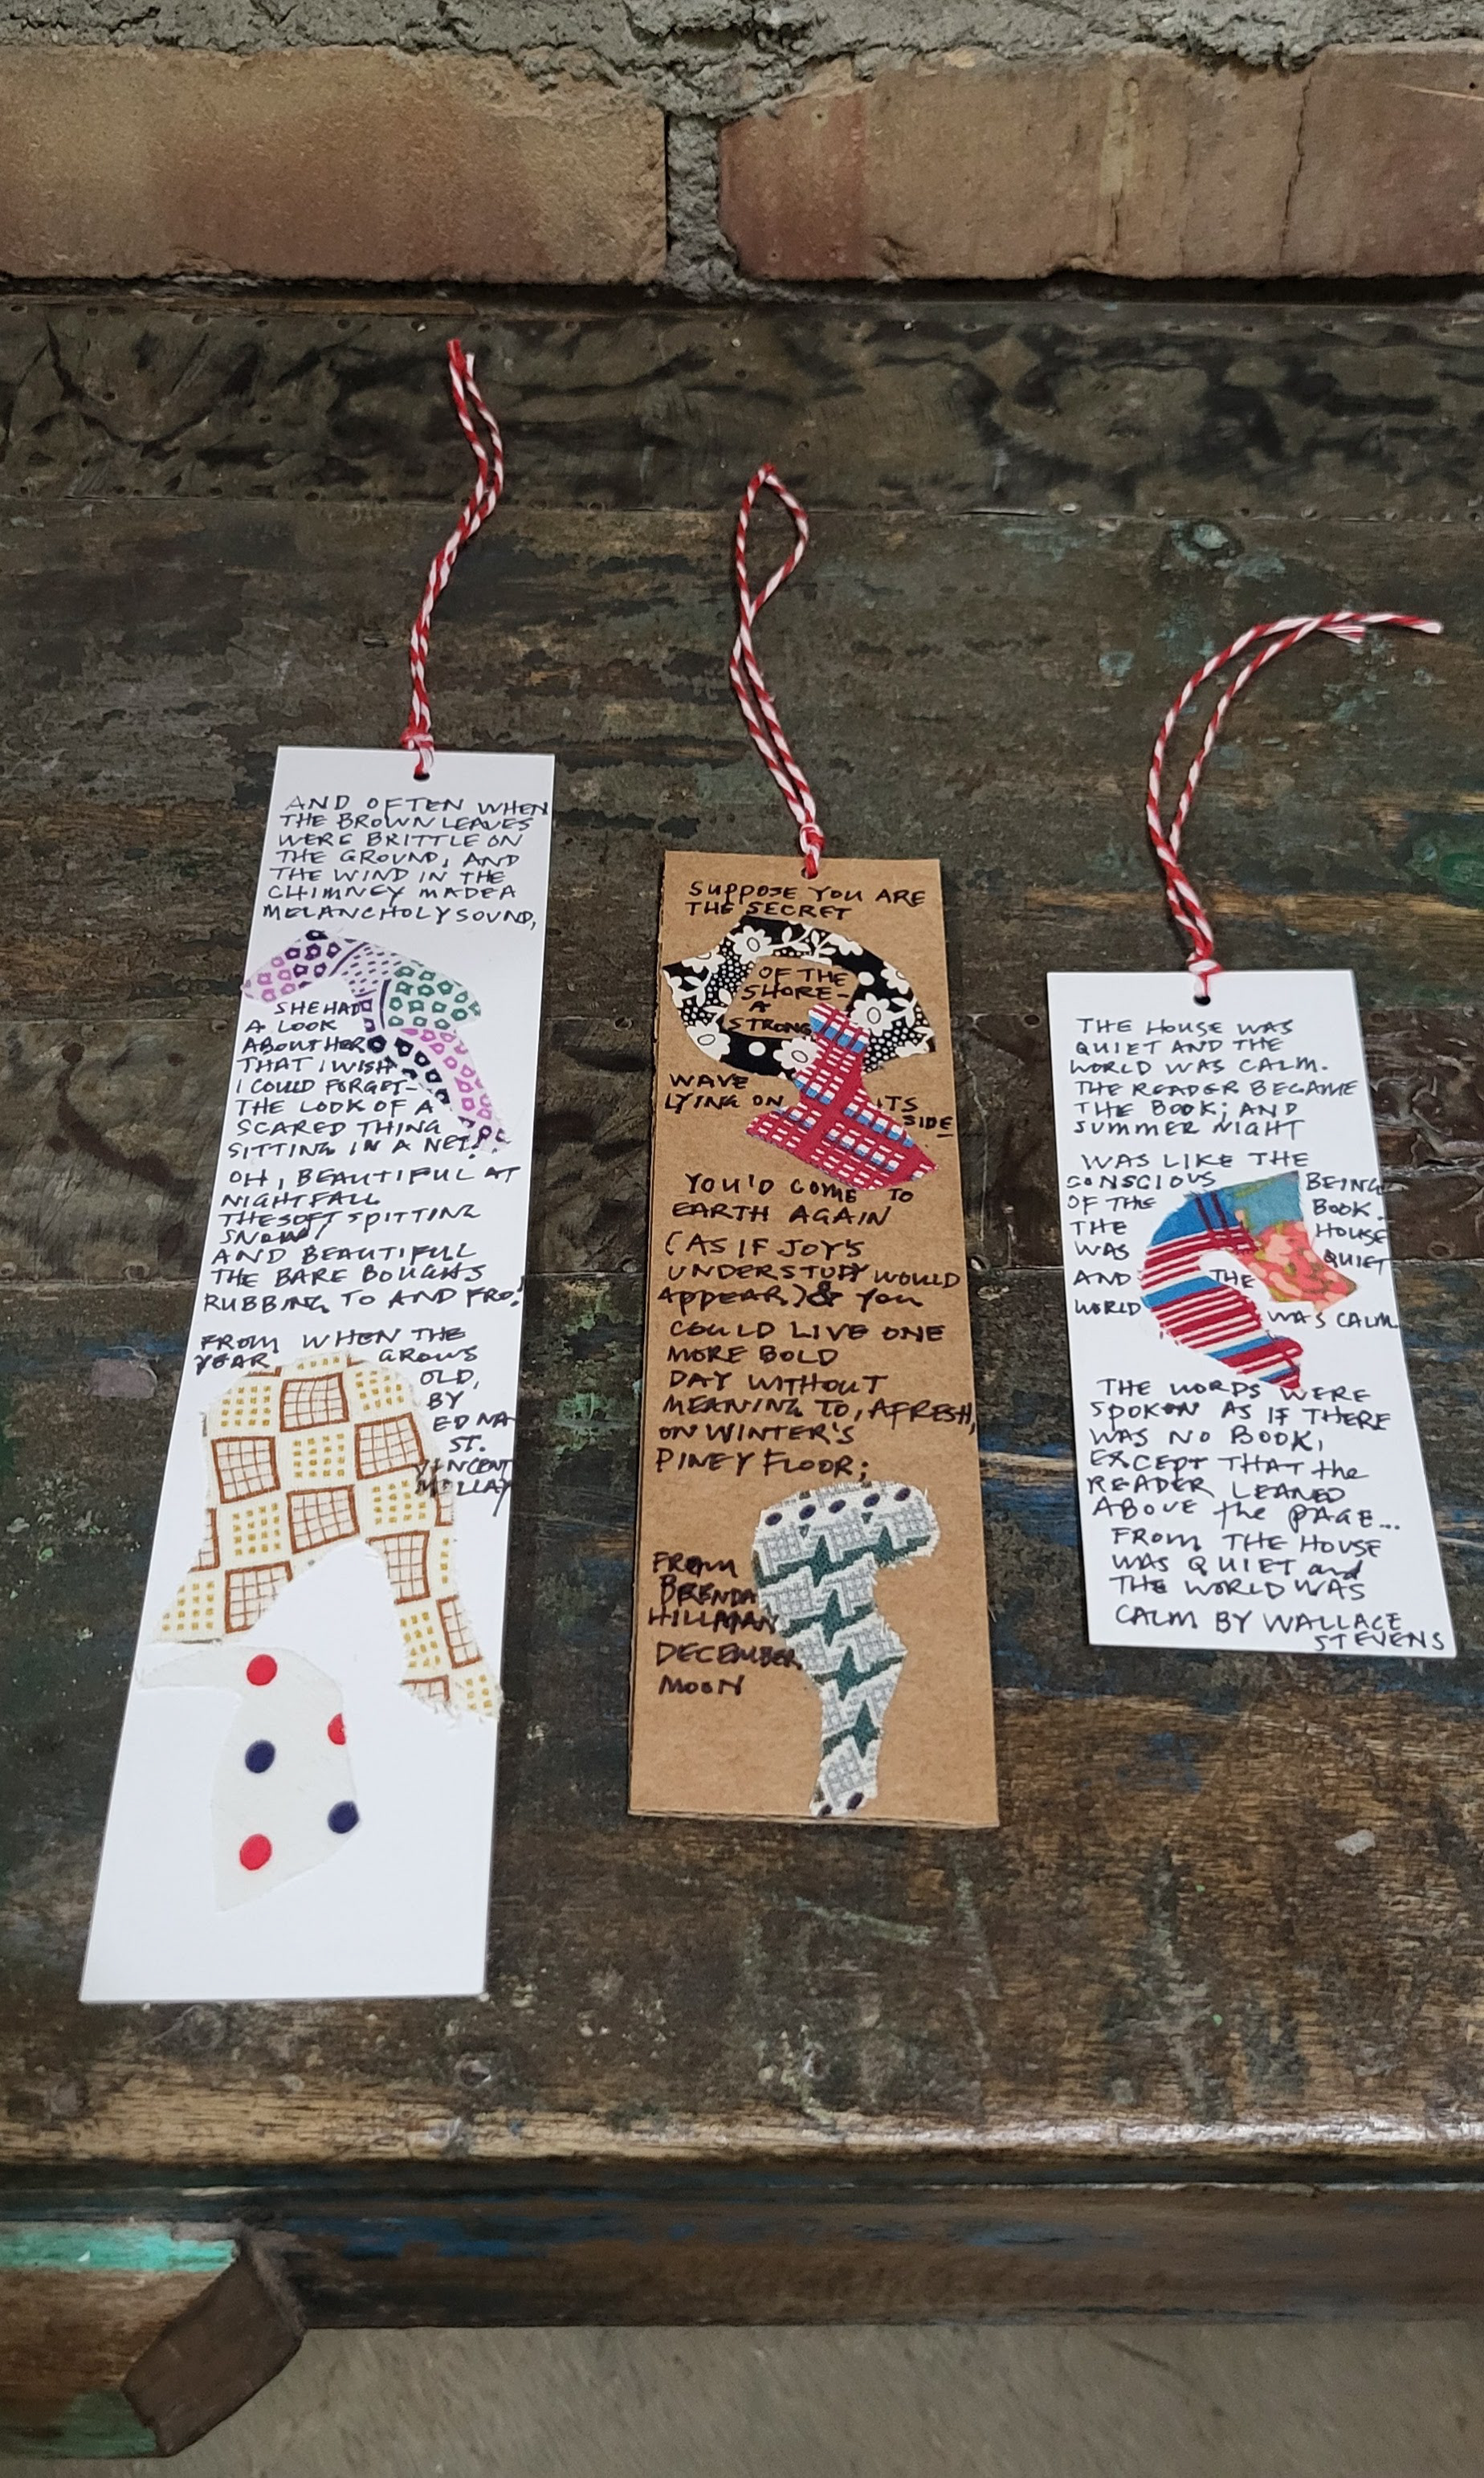 AND OFTEN WHEN
THE BROWN LEAVES
WERE BRITTLE ON
THE GROUND, AND
THE WIND IN THE
CHIMNEY MADE A
MELANCHOLY SOUND,
SHE HAD
A LOOK
ABOUT HER
THAT I WISH
I COULD FORGET-
THE LOOK OF A
SCARED THING
SITTING IN A NET!
OH, BEAUTIFUL AT
NIGHTFALL
THE SOFT SPITTING
SNOW
AND BEAUTIFUL
THE BARE BOUGHS
RUBBING TO AND FRO!
FROM WHEN THE
YEAR GROWS
OLD,
BY
EDNA
ST.
VINCENT
MILLAY
SUPPOSE YOU ARE
THE SECRET
OF THE
SHORE-
A
STRONG
WAVE
LYING ON ITS
SIDE
YOU'D COME TO
EARTH AGAIN
(AS IF JOY'S
UNDERSTUDY WOULD
APPEAR) & YOU
COULD LIVE ONE
MORE BOLD
DAY WITHOUT
MEANING TO, AFRESH,
ON WINTER'S
PINEY FLOOR;
FROM
BRENDA
HILLMAN
DECEMBER
MOON
THE HOUSE WAS
QUIET AND THE
WORLD WAS CALM.
THE READER BECAME
THE BOOK; AND
SUMMER NIGHT
WAS LIKE THE
CONSCIOUS BEING
OF THE BOOK.
THE HOUSE
WAS QUIET
AND THE
WORLD WAS CALM
THE WORDS WERE
SPOKEN AS IF THERE
WAS NO BOOK,
EXCEPT THAT the
READER LEANED
ABOVE the PAGE...
FROM THE HOUSE
WAS QUIET and
THE WORLD WAS
CALM BY WALLACE
STEVENS